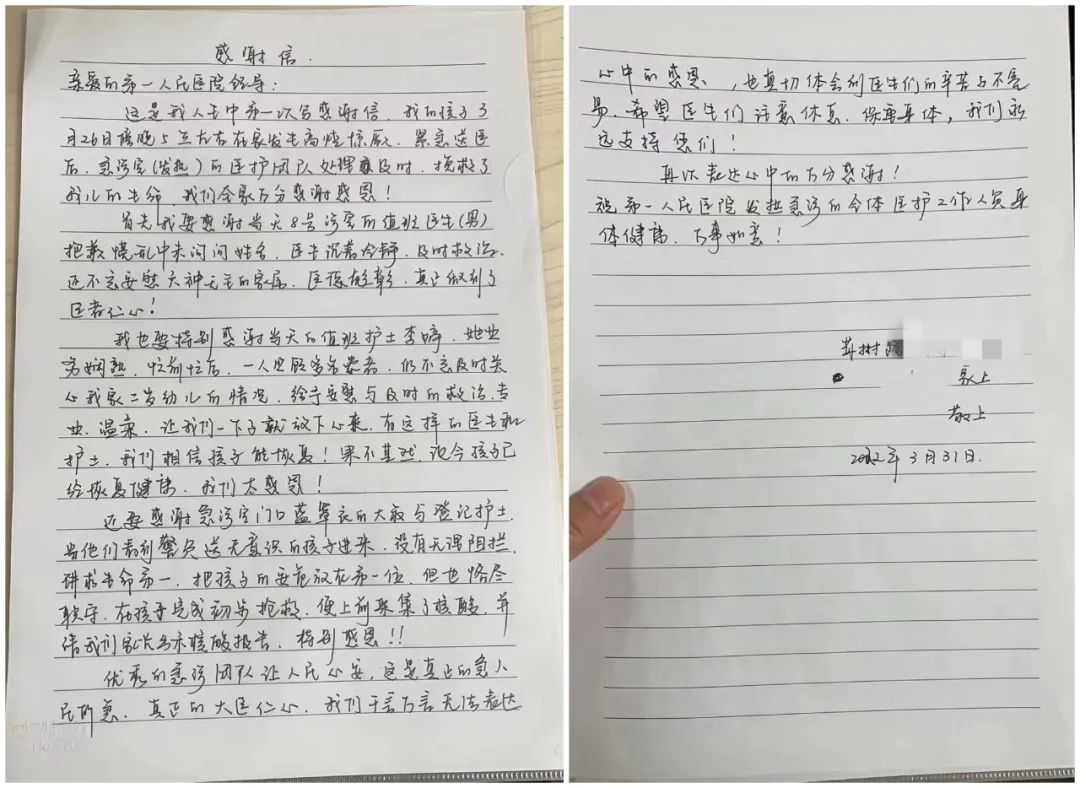 感谢信.
亲爱的第一人民医院领导:
这是我人生中第一次写感谢信. 我的孩子3
月26日傍晚5点左右在家发生高烧惊厥. 紧急送医
后, 急诊室(发热)的医护团队处理及时, 挽救了
我儿的生命, 我们全家万分感谢感恩!
首先我要感谢当天8号诊室的值班医生(男)
抱歉慌乱中未询问姓名. 医生沉着冷静, 及时救治.
还不忘安慰六神无主的家属. 医德彰, 真正做到了
医者仁心!
我也要特别感谢当天的值班护士李婷, 她业
务娴熟, 忙前忙后, 一人照顾多名患者, 仍不忘及时关
心我家二岁幼儿的情况, 给予安慰与及时的救治. 专
业、温柔, 让我们一下子就放下心来, 有这样的医生和
护士, 我们相信孩子能恢复! 果不其然, 如今孩子已
经恢复健康, 我们太感恩!
还要感谢急诊室门口蓝罩衣的大叔与登记护士.
当他们看到警员送无意识的孩子进来, 没有无谓阻拦,
讲求生命第一, 把孩子的安危放在第一位, 但也恪尽
职守, 在孩子完成初步抢救, 便上前采集了核酸, 并
请我们家长出示核酸报告, 特别感恩!!
优秀的急诊团队让人民心安, 这是真正的急人
民所急. 真正的大医仁心. 我们千言万言无法表达
心中的感恩, 也真切体会到医生们的辛苦与不容
易. 希望医生们注意休息. 保重身体, 我们永
远支持您们!
再次表达心中的万分感谢!
祝第一人民医院发热急诊的全体医护工作人员身
体健康, 万事如意!
家上
敬上
2022年3月31日.